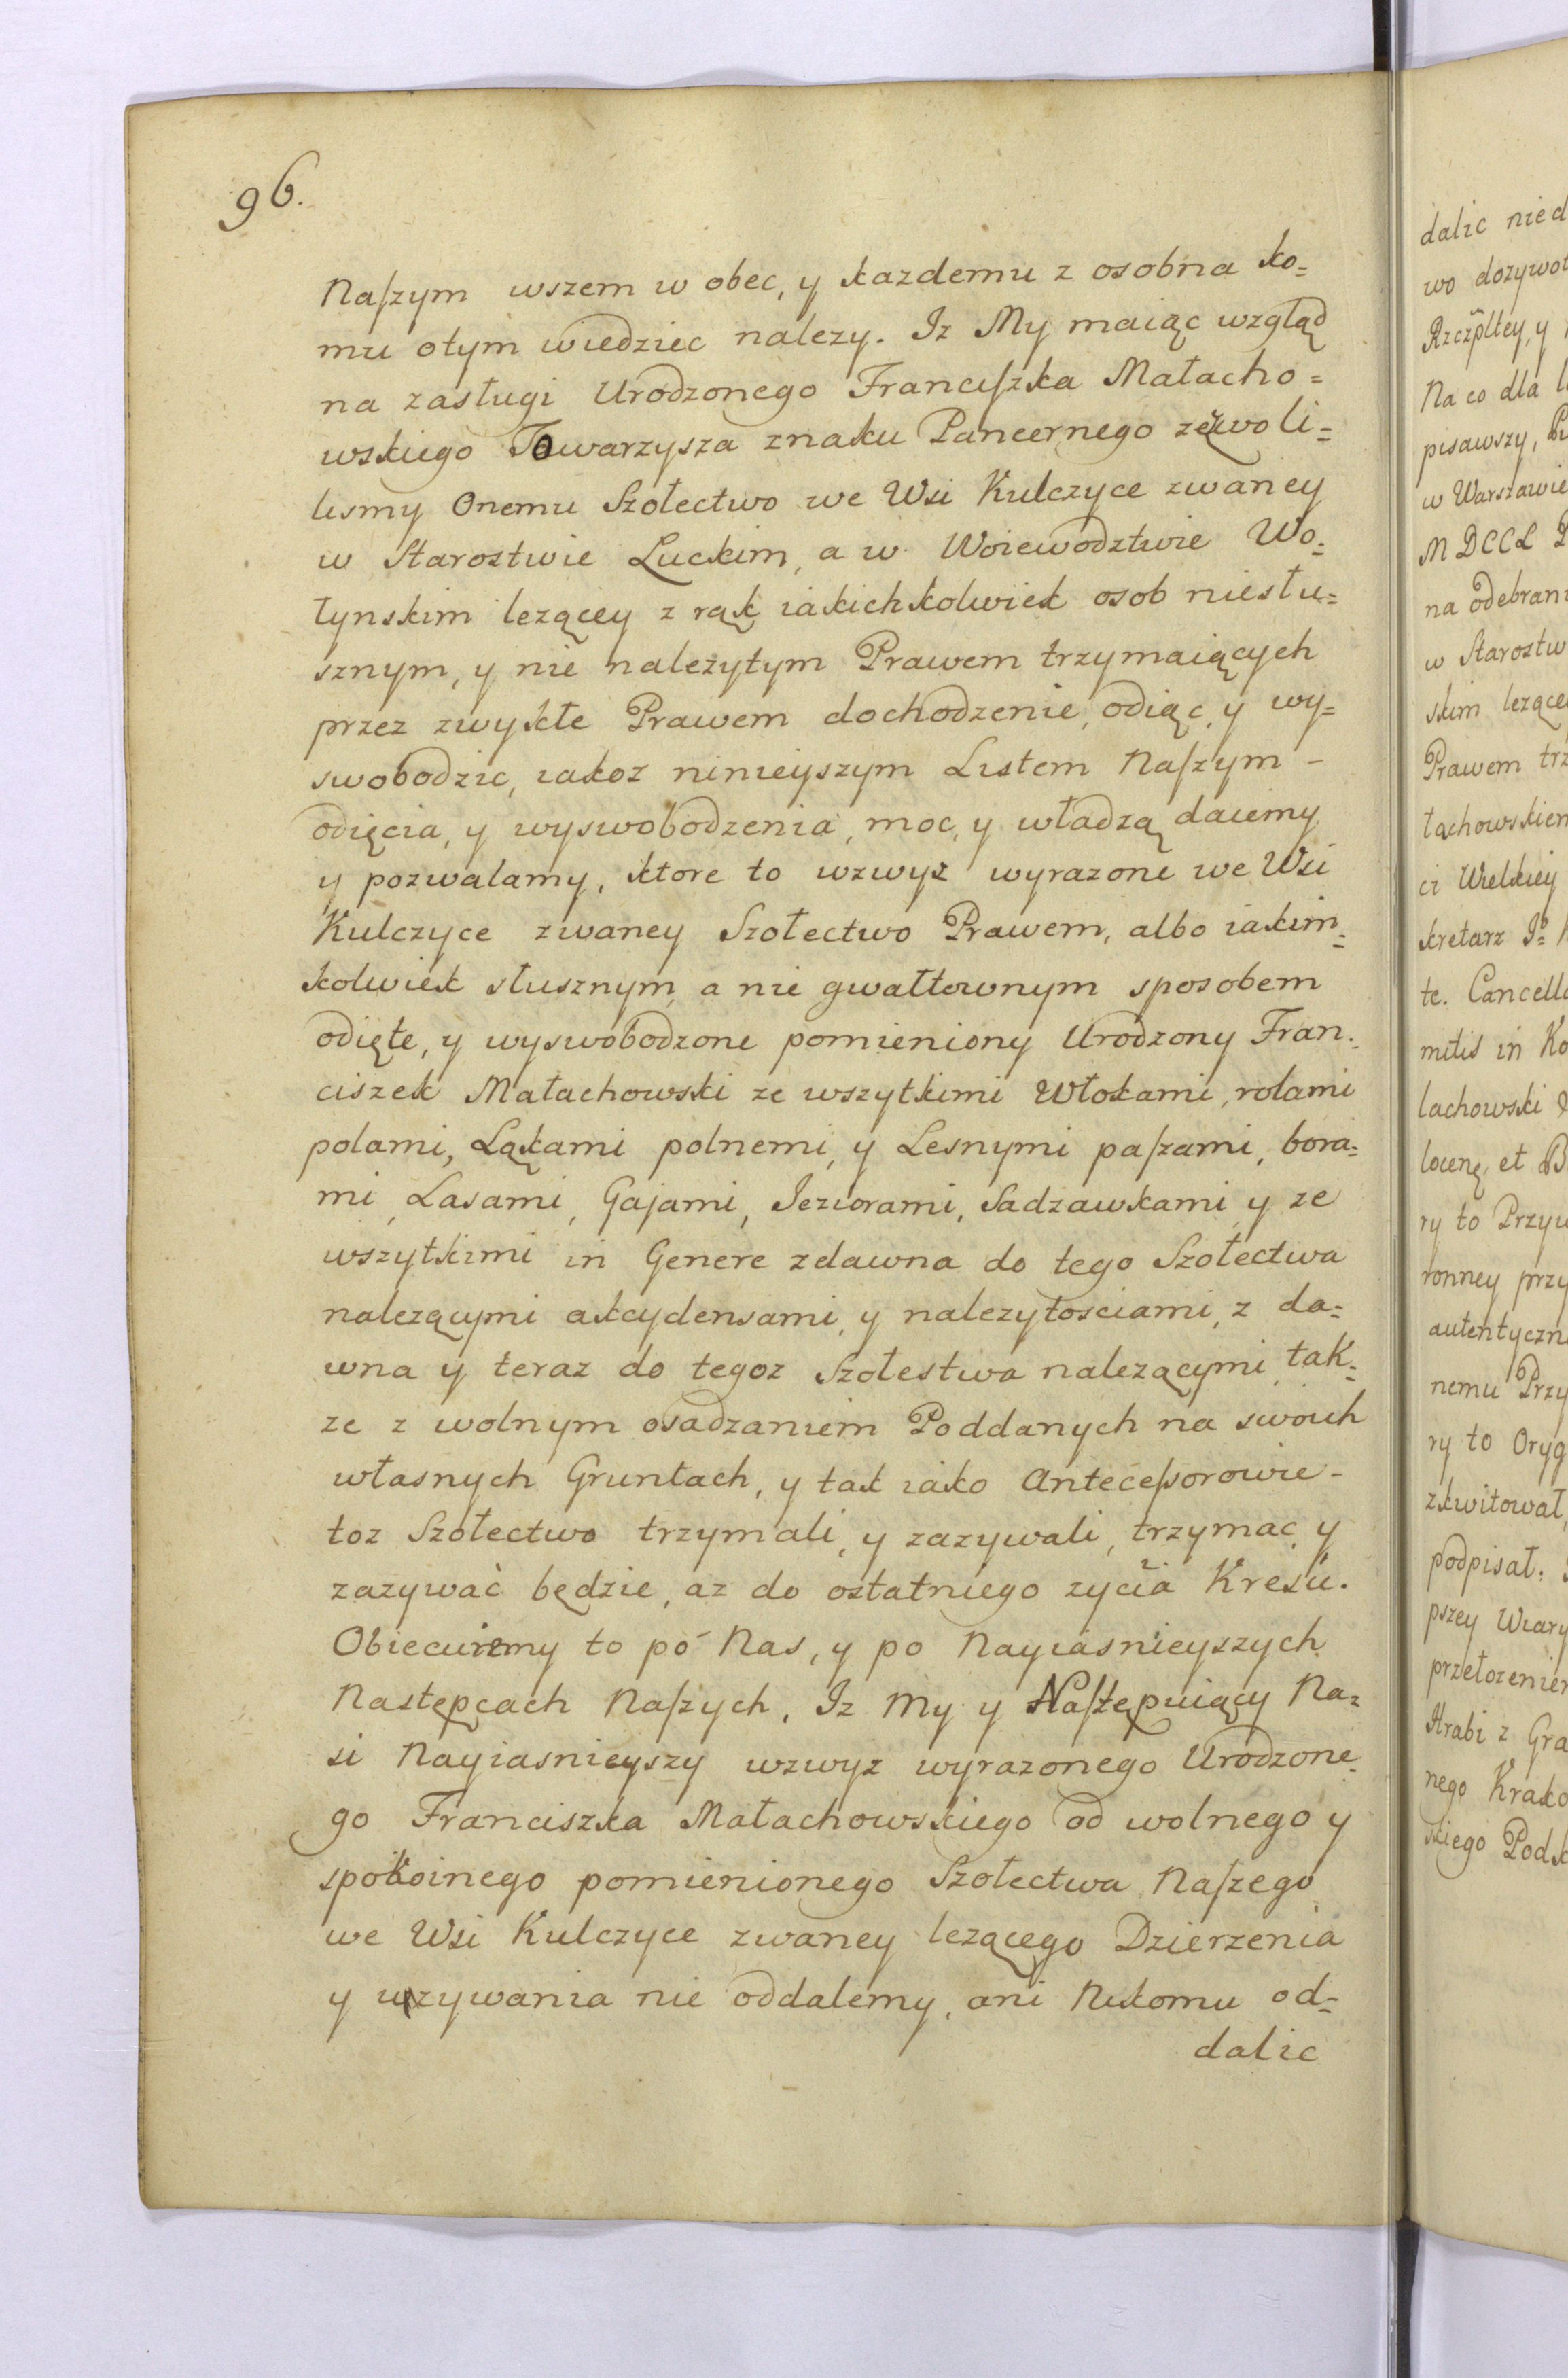 96.
Naſzym wszem w obec, y kazdemu z osobna ko=
mu otym wiedziec nalezy. Iz My maiąc wzgląd
na zasługi Urodzonego Franciſzka Małacho=
wskiego Towarzysza znaku Pancernego zezwoli=
lismy Onemu Szołectwo we Wsi Kulczyce zwaney
w Starostwie Luckim, a w Woiewodztwie Wo=
łynskim lezącey z rąk iakichkolwiek osob niesłu=
sznym, y nie nalezytym Prawem trzymaiących
przez zwykłe Prawem dochodzenie, odiąc, y wy=
swobodzic, iakoz ninieyszym Listem Naſzym -
odięcia, y wyswobodzenia, moc, y władzą daiemy
y pozwalamy, ktore to wzwyz wyrazone we Wsi
Kulczyce zwaney Szołectwo Prawem, albo iakim=
kolwiek słusznym, a nie gwałtownym sposobem
odięte, y wyswobodzone pomieniony Urodzony Fran=
ciszek Małachowski ze wszytkimi Włokami, rolami
polami, Ląkami polnemi, y Lesnymi paſzami, bora=
mi, Lasami, Gajami, Ieziorami, Sadzawkami, y ze
wszytkimi in Genere zdawna do tego Szołectwa
nalezącymi akcydensami, y nalezytosciami, z da=
wna y teraz do tegoz Szołestwa nalezącymi, tak=
ze z wolnym osadzaniem Poddanych na swoich
własnych Gruntach, y tak iako Anteceſsorowie -
toz Szołectwo trzymali, y zazywali, trzymac, y
zazywać będzie, az do ostatniego zycia Kresu.
Obiecuiemy to po Nas, y po Nayiasnieyszych
Następcach Naſzych, Iz My y Naſtępuiący Na=
si Nayiasnieyszy wzwyz wyrazonego Urodzone=
go Franciszka Małachowskiego od wolnego y
spokoinego pomienionego Szołectwa Naſzego
we Wsi Kulczyce zwaney lezącego Dzierzenia
y uzywania nie oddalemy, ani Nikomu od=
dalic
dalic nied
wo dozywot
Rzczpltey, y
Na co dla
pisawszy,
w Warszawie
MDCCL
na odebrani
w Starostw
skim lezące
Prawem trz
łachowskiem
ci Wielkiey
kretarz
te. Cancella
mitis in Ko
lachowski
locenę, et
ry to Przyw
ronney przy
autentyczn
nemu Przy
ry to Oryg
zkwitował,
podpisał.
pszey Wiary
przełozenie
Hrabi z Gra
nego Krako
skiego Podk